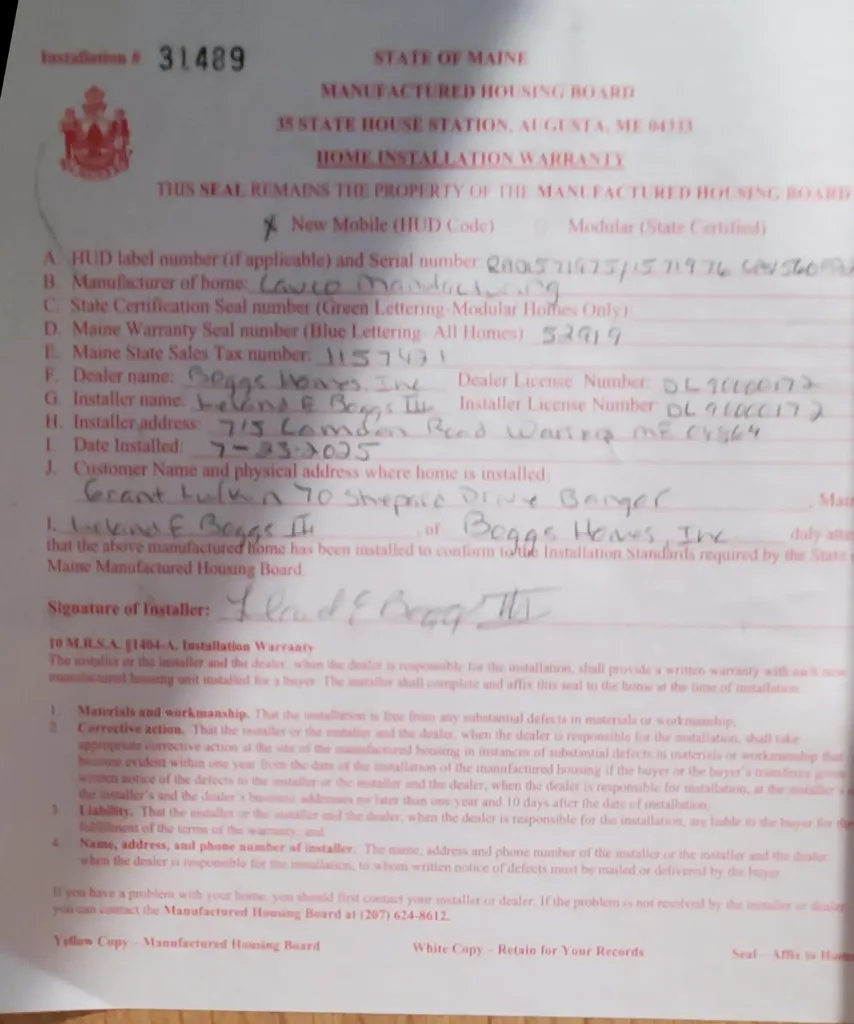 Installation # 31489
STATE OF MAINE
MANUFACTURED HOUSING BOARD
35 STATE HOUSE STATION, AUGUSTA, ME 04333
HOME INSTALLATION WARRANTY
THIS SEAL REMAINS THE PROPERTY OF THE MANUFACTURED HOUSING BOARD
X New Mobile (HUD Code) Modular (State Certified)
A. HUD label number (if applicable) and Serial number: RAD1571975/1571976
B. Manufacturer of home: Cavco Manufacturing
C. State Certification Seal number (Green Lettering-Modular Homes Only)
D. Maine Warranty Seal number (Blue Lettering- All Homes) 52919
E. Maine State Sales Tax number: 1157421
F. Dealer name: Boggs Homes, Inc Dealer License Number: DL91000172
G. Installer name: Leland E Boggs III Installer License Number DL91000172
H. Installer address: 715 Camden Road Warren ME 04864
I. Date Installed: 7-23-2025
J. Customer Name and physical address where home is installed:
Grant 70 Drive Bangor, Mai
I, Leland E Boggs III, of Boggs Homes, Inc duly atte
that the above manufactured home has been installed to conform to the Installation Standards required by the State
Maine Manufactured Housing Board.
Signature of Installer: Leland E Boggs III
10 M.R.S.A. §1404-A. Installation Warranty
The installer or the installer and the dealer, when the dealer is responsible for the installation, shall provide a written warranty with each new
manufactured housing unit installed for a buyer. The installer shall complete and affix this seal to the home at the time of installation.
1. Materials and workmanship. That the installation is free from any substantial defects in materials or workmanship;
2. Corrective action. That the installer or the installer and the dealer, when the dealer is responsible for the installation, shall take
appropriate corrective action at the site of the manufactured housing in instances of substantial defects in materials or workmanship that
become evident within one year from the date of the installation of the manufactured housing if the buyer or the buyer's transferee gives
written notice of the defects to the installer or the installer and the dealer, when the dealer is responsible for installation, at the installer's
the installer's and the dealer's business addresses no later than one year and 10 days after the date of installation;
3. Liability. That the installer or the installer and the dealer, when the dealer is responsible for the installation, are liable to the buyer for the
fulfillment of the terms of the warranty; and
4. Name, address, and phone number of installer. The name, address and phone number of the installer or the installer and the dealer
when the dealer is responsible for the installation, to whom written notice of defects must be mailed or delivered by the buyer.
If you have a problem with your home, you should first contact your installer or dealer. If the problem is not resolved by the installer or dealer
you can contact the Manufactured Housing Board at (207) 624-8612.
Yellow Copy – Manufactured Housing Board White Copy – Retain for Your Records Seal – Affix to Home